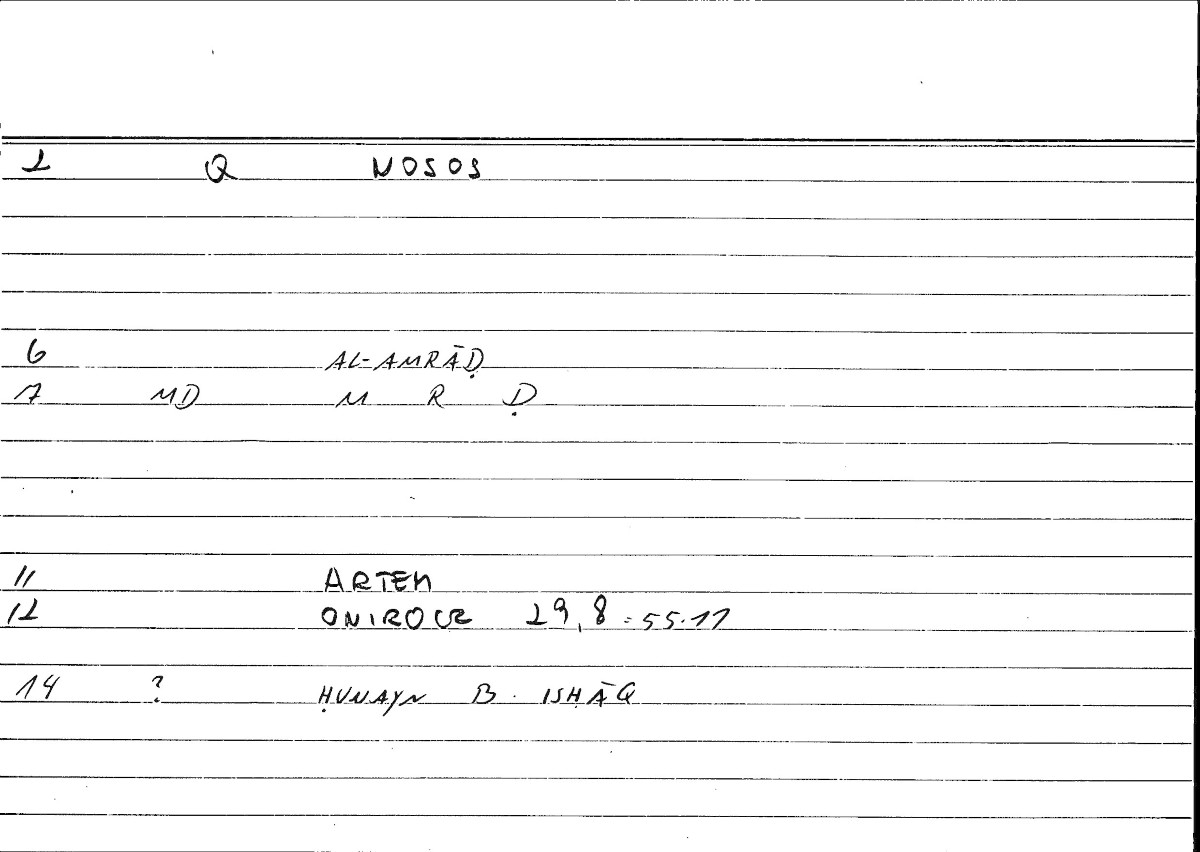 2 Q NOSOS
6 AL-AMRĀḌ
7 MD M R Ḍ
11 ARTEM
12 ONIROCR 29,8 = 55.11
14 ? ḤUNAYN B. ISḤĀQ